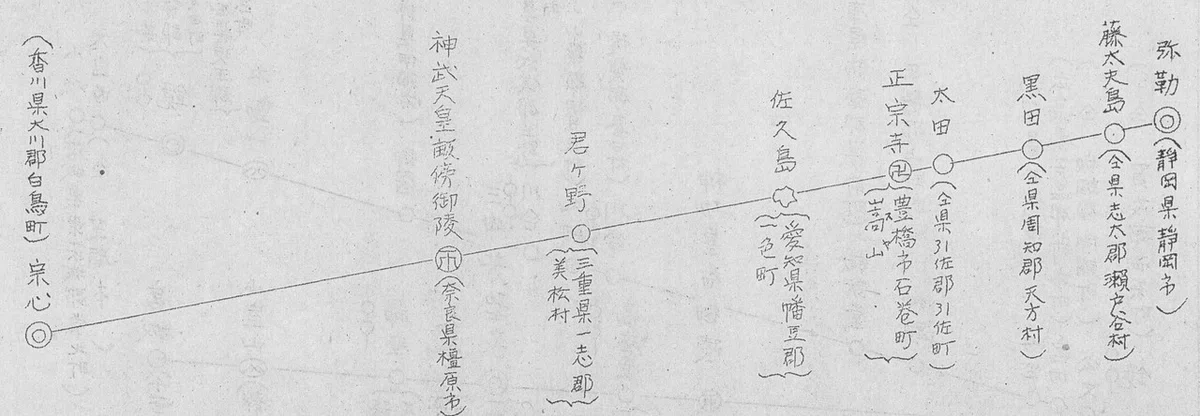 弥勒
(静岡県静岡市)
藤太夫島
(仝県志太郡瀬戸谷村)
黒田
(仝県周知郡天方村)
太田
(仝県引佐郡引佐町)
正宗寺
卍
豊橋市石巻町
嵩山
スヤマ
佐久島
愛知県幡豆郡
一色町
君ヶ野
三重県一志郡
美杉村
神武天皇畝傍御陵
(奈良県橿原市)
(香川県大川郡白鳥町)宗心